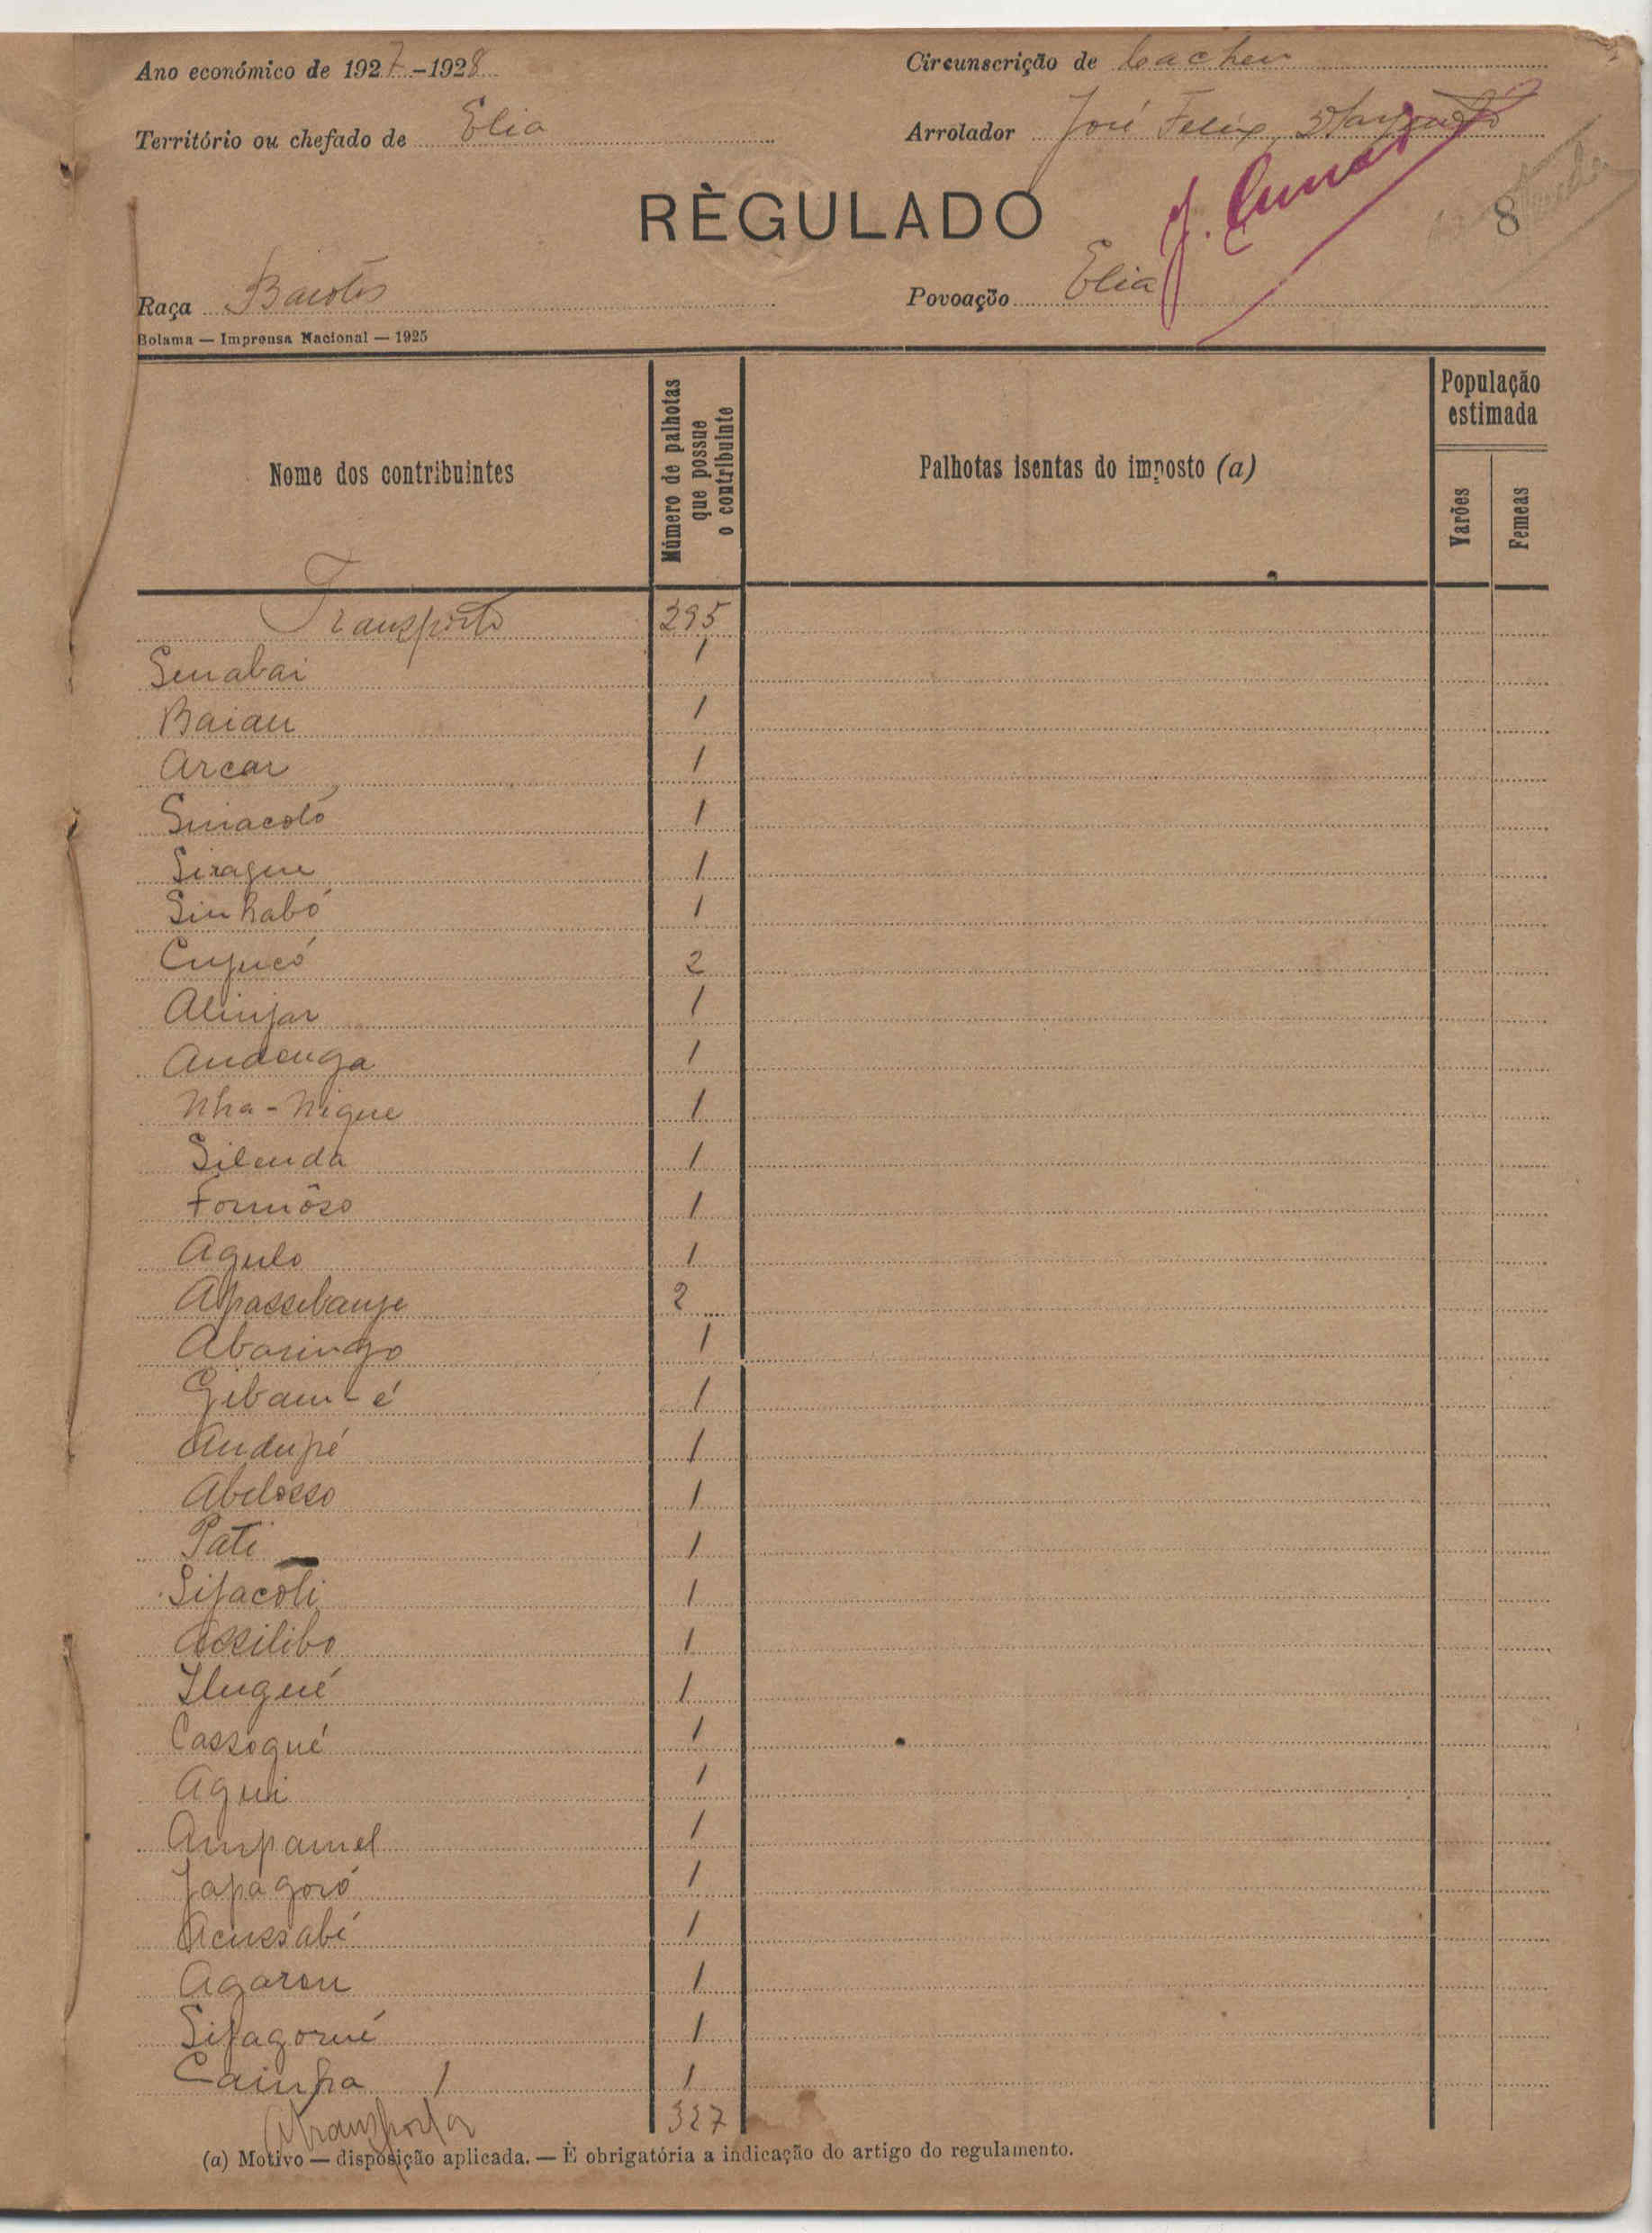 Ano económico de 1927-1928
Circunscrição de Cacheu
Território ou chefado de Elia
Arrolador José Felix
RÈGULADO
J. Cunha
8
Raça Baiotes
Povoação Elia
Bolama — Imprensa Nacional — 1925
Nome dos contribuintes
Número de palhotas que possue o contribuinte
Palhotas isentas do imposto (a)
População estimada
Varões
Femeas
Transporte 295
Senabai 1
Baiau 1
Arcar 1
Siniacoló 1
Siragui 1
Sinhabó 1
Cujucó 2
Alinjar 1
Andenga 1
Nha-Nigue 1
Silenda 1
Formôso 1
Agulo 1
Apassebanje 2
Abaringo 1
Gibam-é 1
Andupé 1
Abelosso 1
Pati 1
Sifacoti 1
Assilibo 1
Ilugué 1
Cassogué 1
Agui 1
Ampamel 1
Japagoró 1
Acussabé 1
Agaren 1
Sifagorué 1
Cainha 1 1
A transportar 327
(a) Motivo — disposição aplicada. — È obrigatória a indicação do artigo do regulamento.